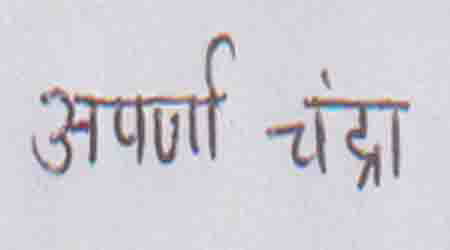 अपर्णा चंद्रा